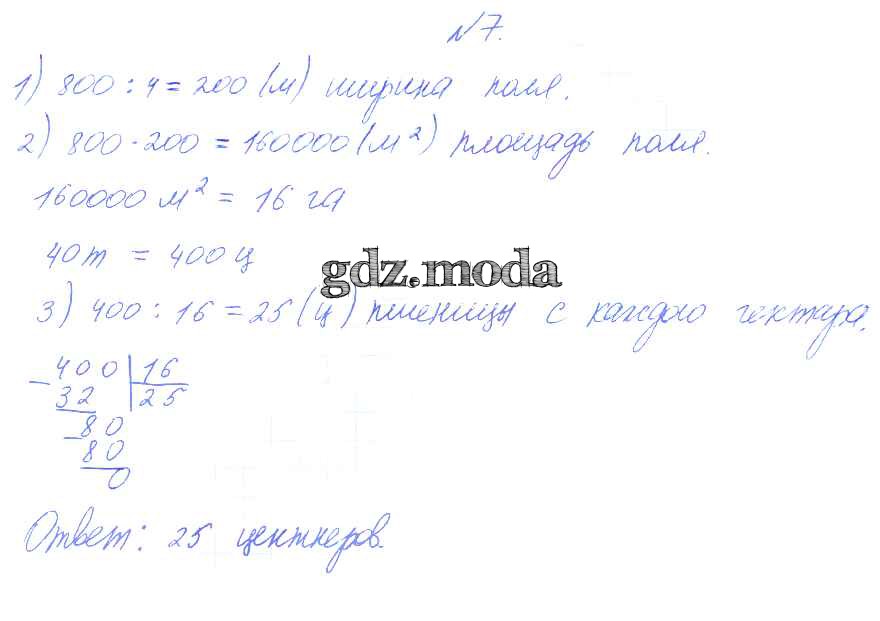 №7.
1) 800 : 4 = 200 (м) ширина поля.
2) 800 · 200 = 160000 (м²) площадь поля.
160000 м² = 16 га
40 т = 400 ц
gdz.moda
3) 400 : 16 = 25 (ц) пшеницы с каждого гектара.
– 400 | 16
32 | 25
– 80
80
0
Ответ: 25 центнеров.